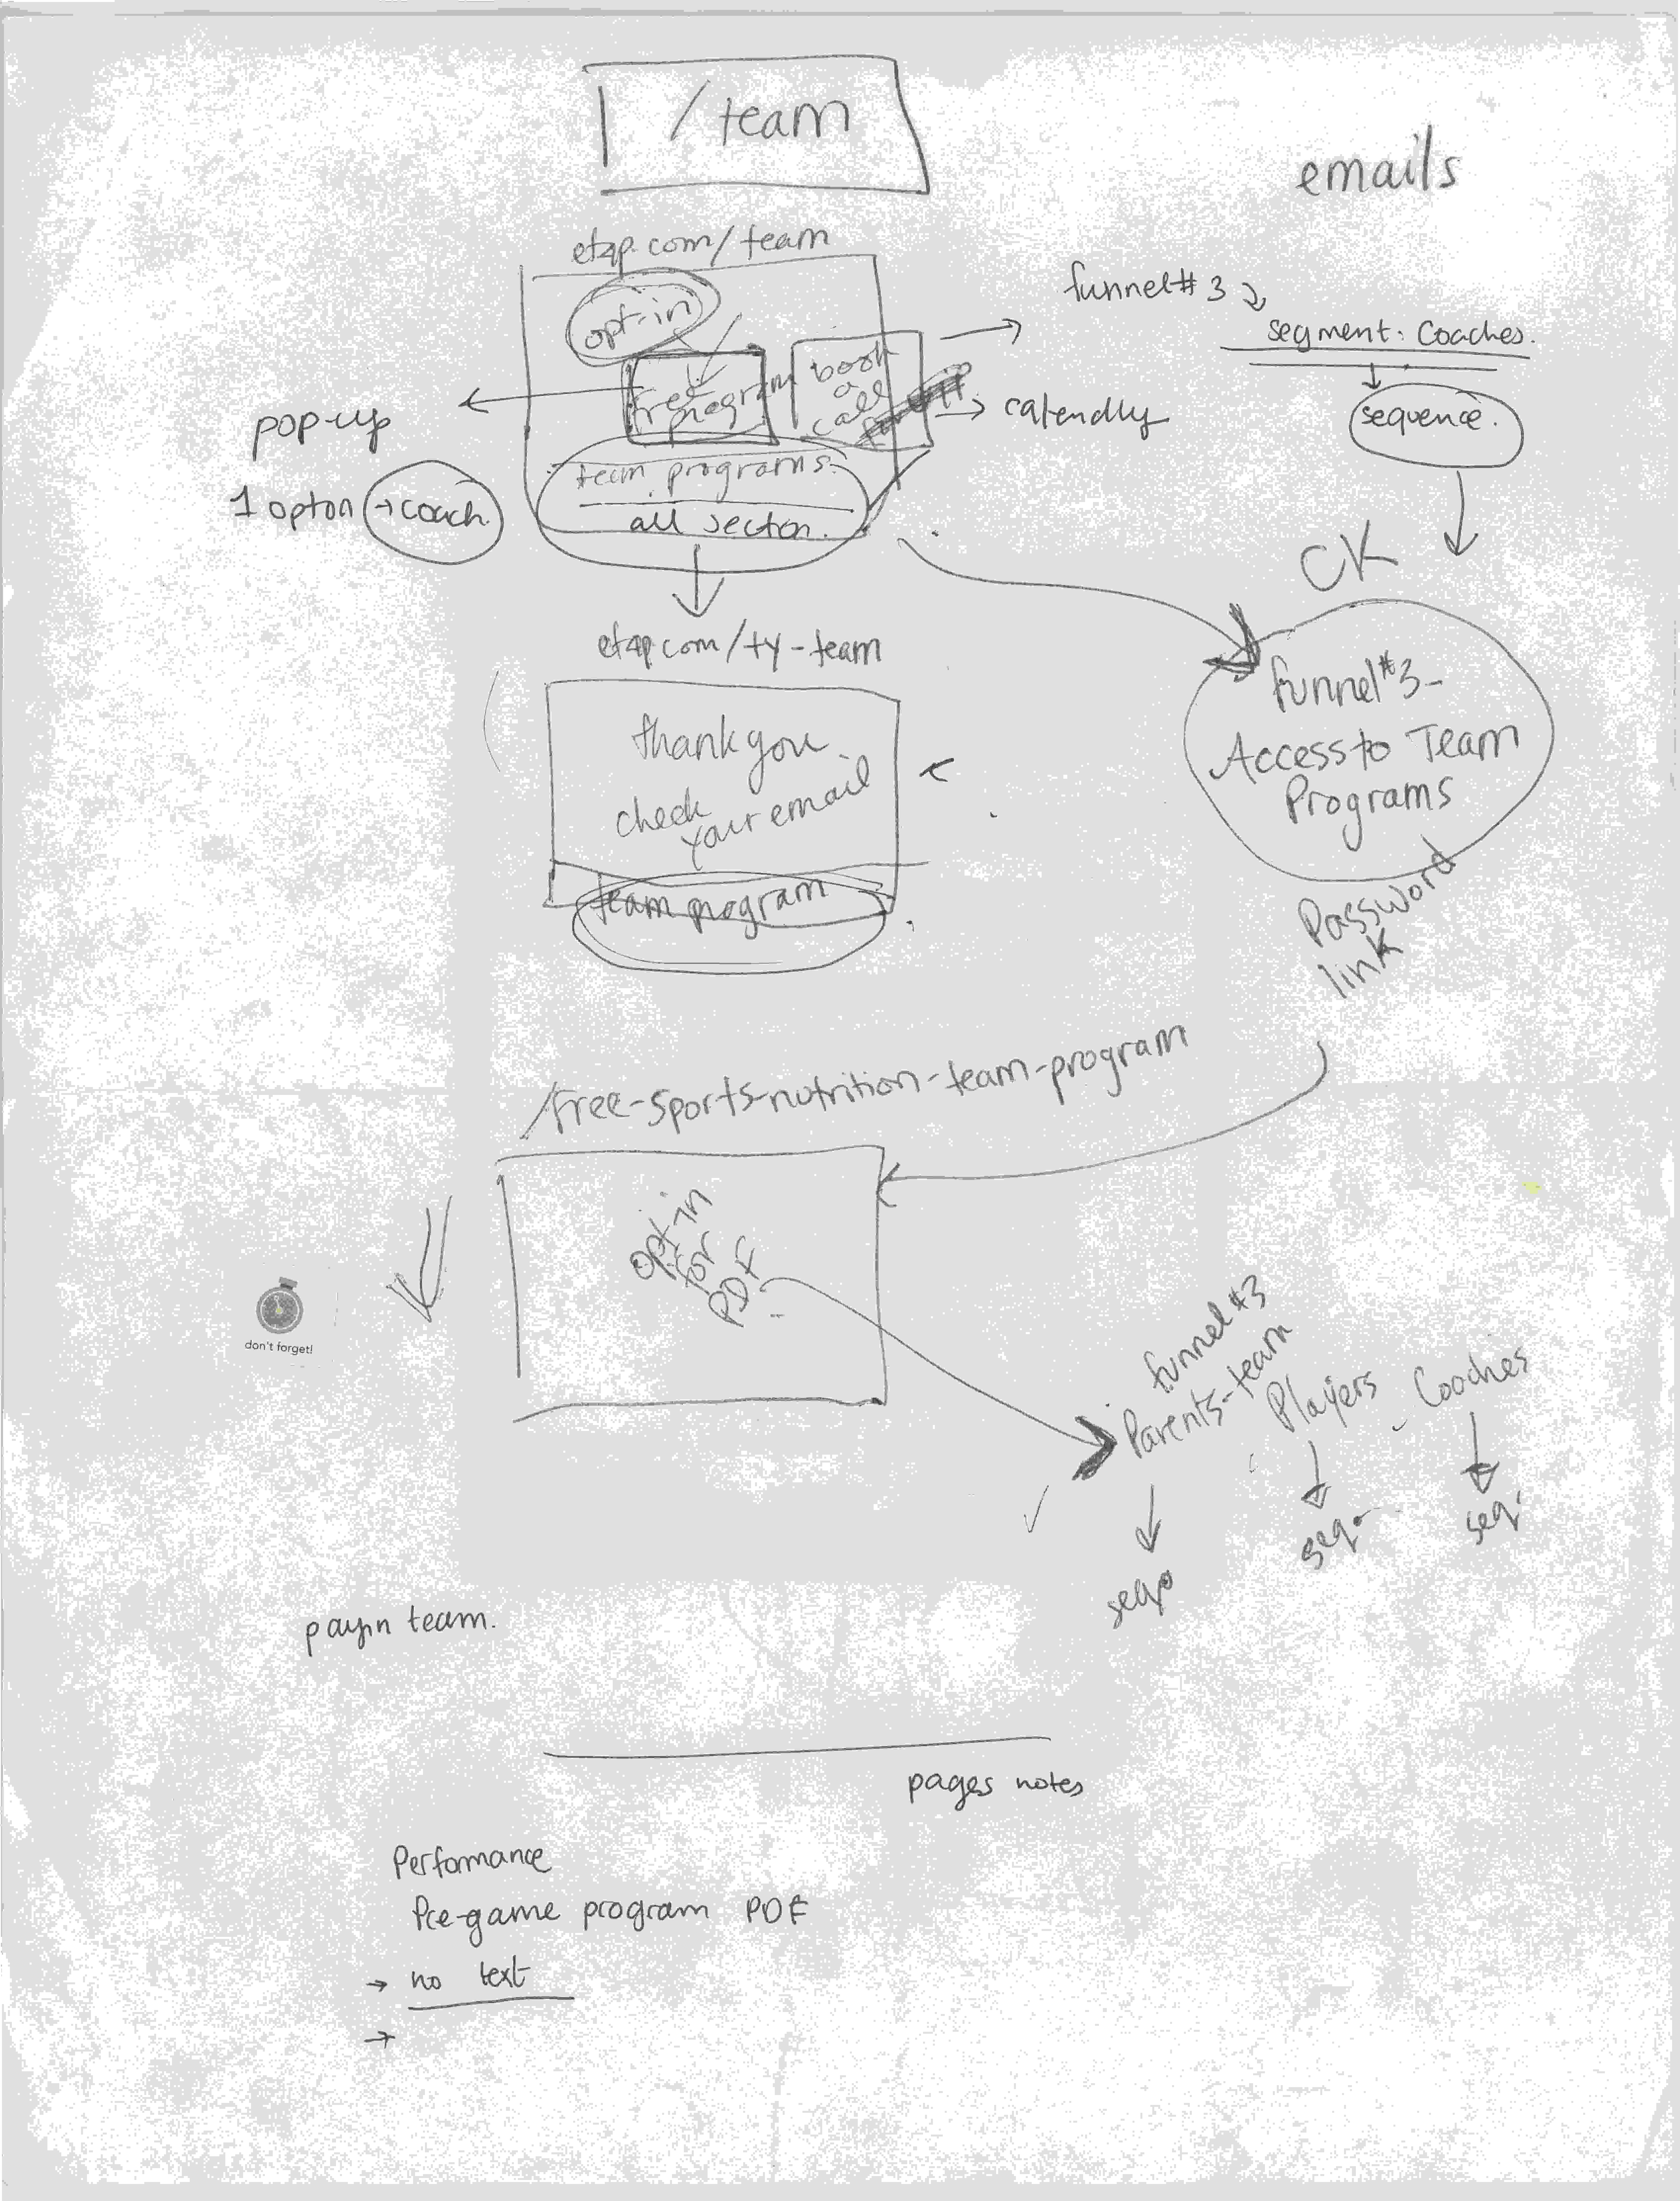 /team
emails
etqp.com/team
opt-in
free program
book
a
call
funnel# 3
segment: Coaches.
sequence.
calendly
pop-up
1 opton → coach.
team programs.
all secton.
CK
etqp.com/ty-team
thank you
check
your email
team program
funnel #3-
Access to Team
Programs
Password
link
/free-sports-nutrition-team-program
opt-in
for
PDF
don't forget!
funnel #3
Parents-team
Players
- Coaches
seq.
seq.
seq.
team.
pages notes
Performance
Pre-game program PDF
→ no text
→